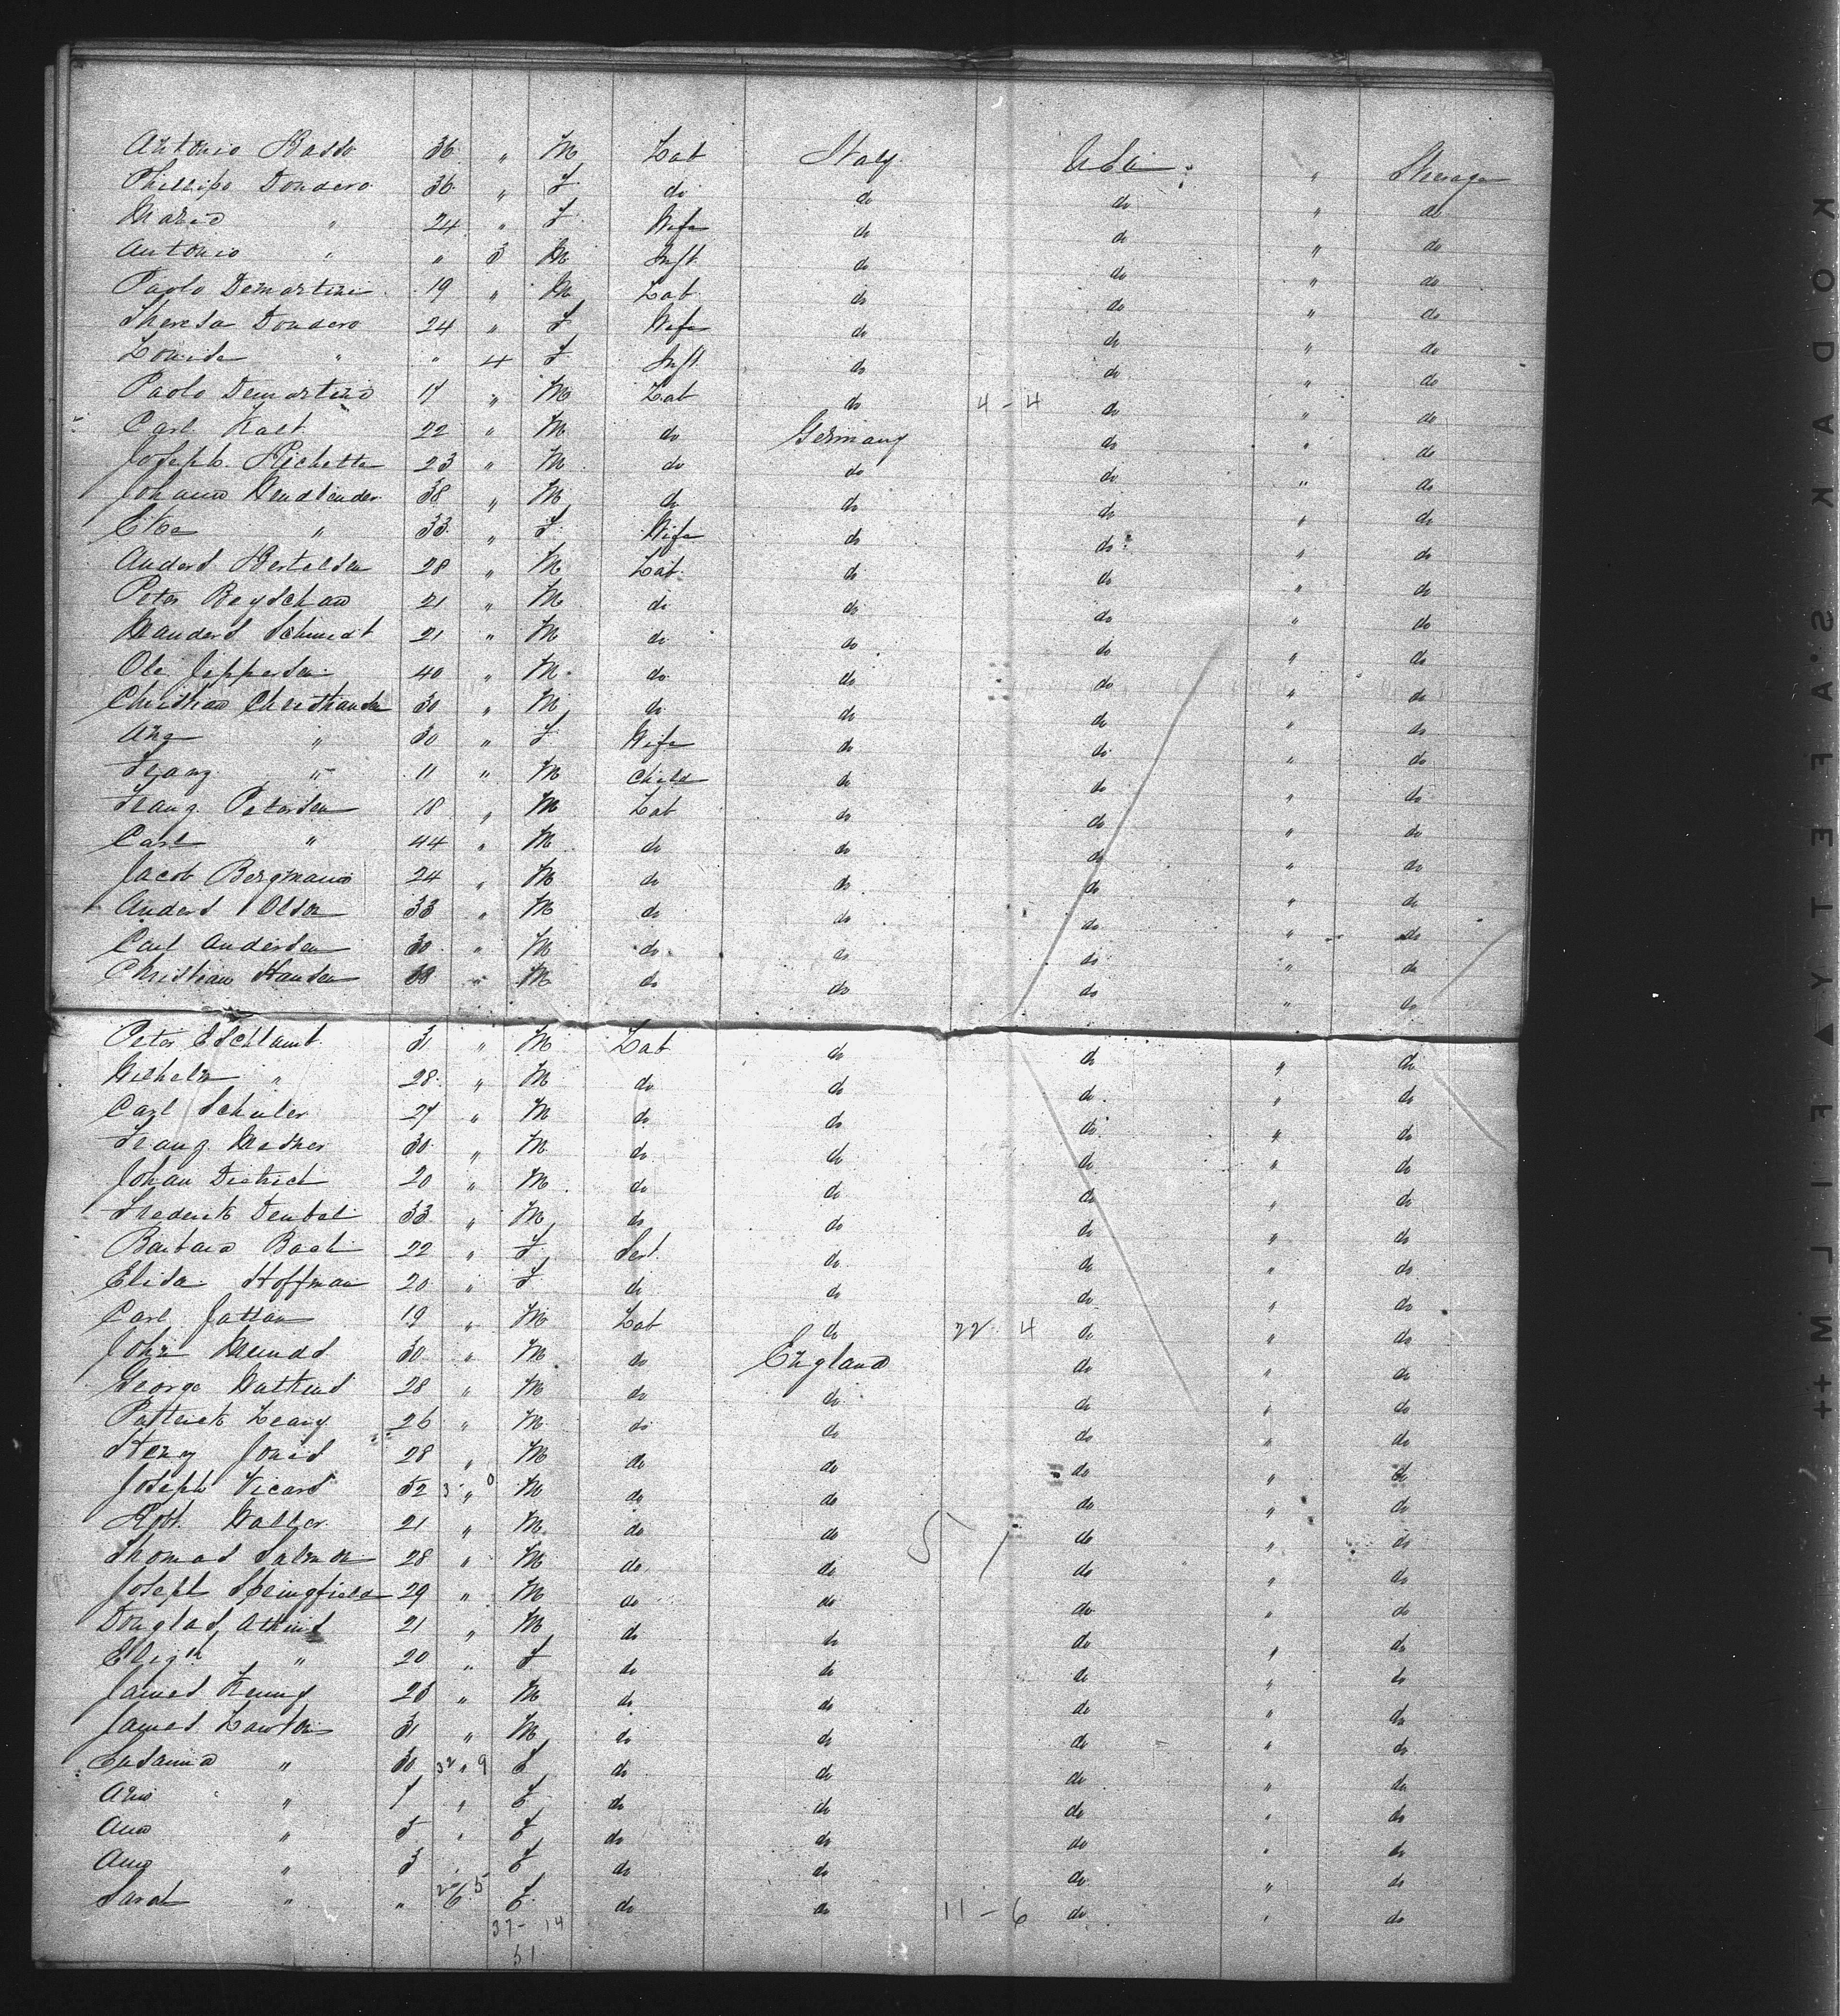 Antonio Basso 36 " M Lab Italy U.S. " Steerage
Phillipo Dondero 36 " F do do do " do
Maria " 24 " F Wife do do " do
Antonio " " 3 M Inft do do " do
Paolo Demartini 19 " M Lab do do " do
Theresa Dondero 24 " F Wife do do " do
Louisa " " 4 F Inft do do " do
Paolo Demartino 17 " M Lab do 4-4 do " do
Carl Kalt 22 " M do Germany do " do
Joseph Richetta 23 " M do do do " do
Johann 38 " M do do do " do
" 33 " F Wife do do " do
Anders Bertelsen 28 " M Lab do do " do
Peter Boyschau 21 " M do do do " do
Schmidt 21 " M do do do " do
Ole Jeppesen 40 " M do do do " do
Christian Christiansen 30 " M do do do " do
Ane " 30 " F Wife do do " do
Franz " 11 " M Child do do " do
Franz Petersen 18 " M Lab do do " do
Carl " 44 " M do do do " do
Jacob Bergmann 24 " M do do do " do
Anders Olsen 33 " M do do do " do
Carl Andersen 30 " M do do do " do
Christian Hansen 38 " M do do do " do
Peter Eschlamb 31 " M Lab do do " do
Wilhelm " 28 " M do do do " do
Carl Schuler 27 " M do do do " do
Franz 30 " M do do do " do
Johan Dietrich 20 " M do do do " do
Frederik Deubel 33 " M do do do " do
Barbara Bach 22 " F Sert do do " do
Elisa Hoffman 20 " F do do do " do
Carl Jattan 19 " M Lab do 22 4 do " do
John 30 " M do England do " do
George Watkins 28 " M do do do " do
Patrick Leary 26 " M do do do " do
Henry Jones 28 " M do do do " do
Joseph Vicars 52 3 " 0 M do do do " do
Robt. Waller 21 " M do do 5 1 do " do
Thomas Salmon 28 " M do do do " do
Joseph Springfield 29 " M do do do " do
Douglas Atkins 21 " M do do do " do
Elizth " 20 " F do do do " do
James Kenny 28 " M do do do " do
James Lawton 31 " M do do do " do
Susanna " 30 32 " 9 F do do do " do
Ann " 7 " F do do do " do
Ann " 5 " F do do do " do
Ann " 3 " F do do do " do
Sarah " " 6 F do do 11-6 do " do
37-14
51
KODAK·SAFETY▲FILM++